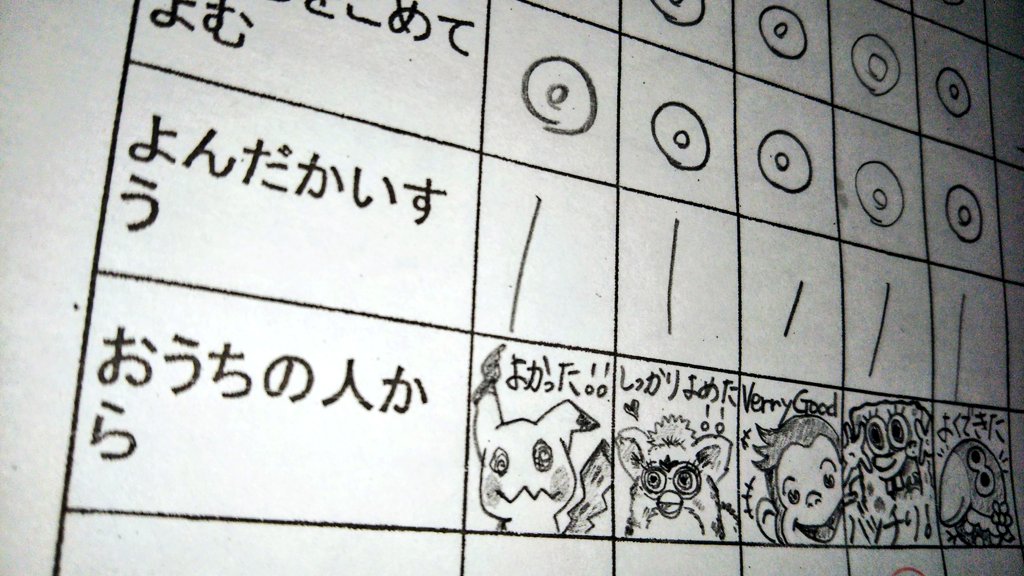 をこめて
よむ
よんだかいす
う
おうちの人か
ら
よかった!!
しっかりよめた
!!
VerryGood
バッチリ!
よくできた